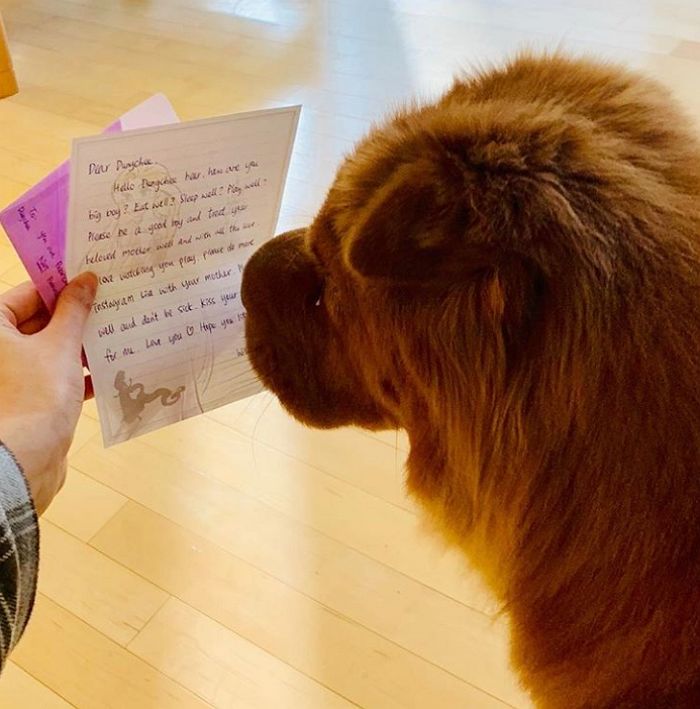 Dear Dungchee
Hello Dungchee here, how are you
big boy? Eat well? Sleep well? Play well?
Please be a good boy and treat your
beloved mother well and with all the love
love watching you play, please do more
Instagram Live with your mother.
well and don't be sick. Kiss your
for me. Love you ♡ Hope you
To
you